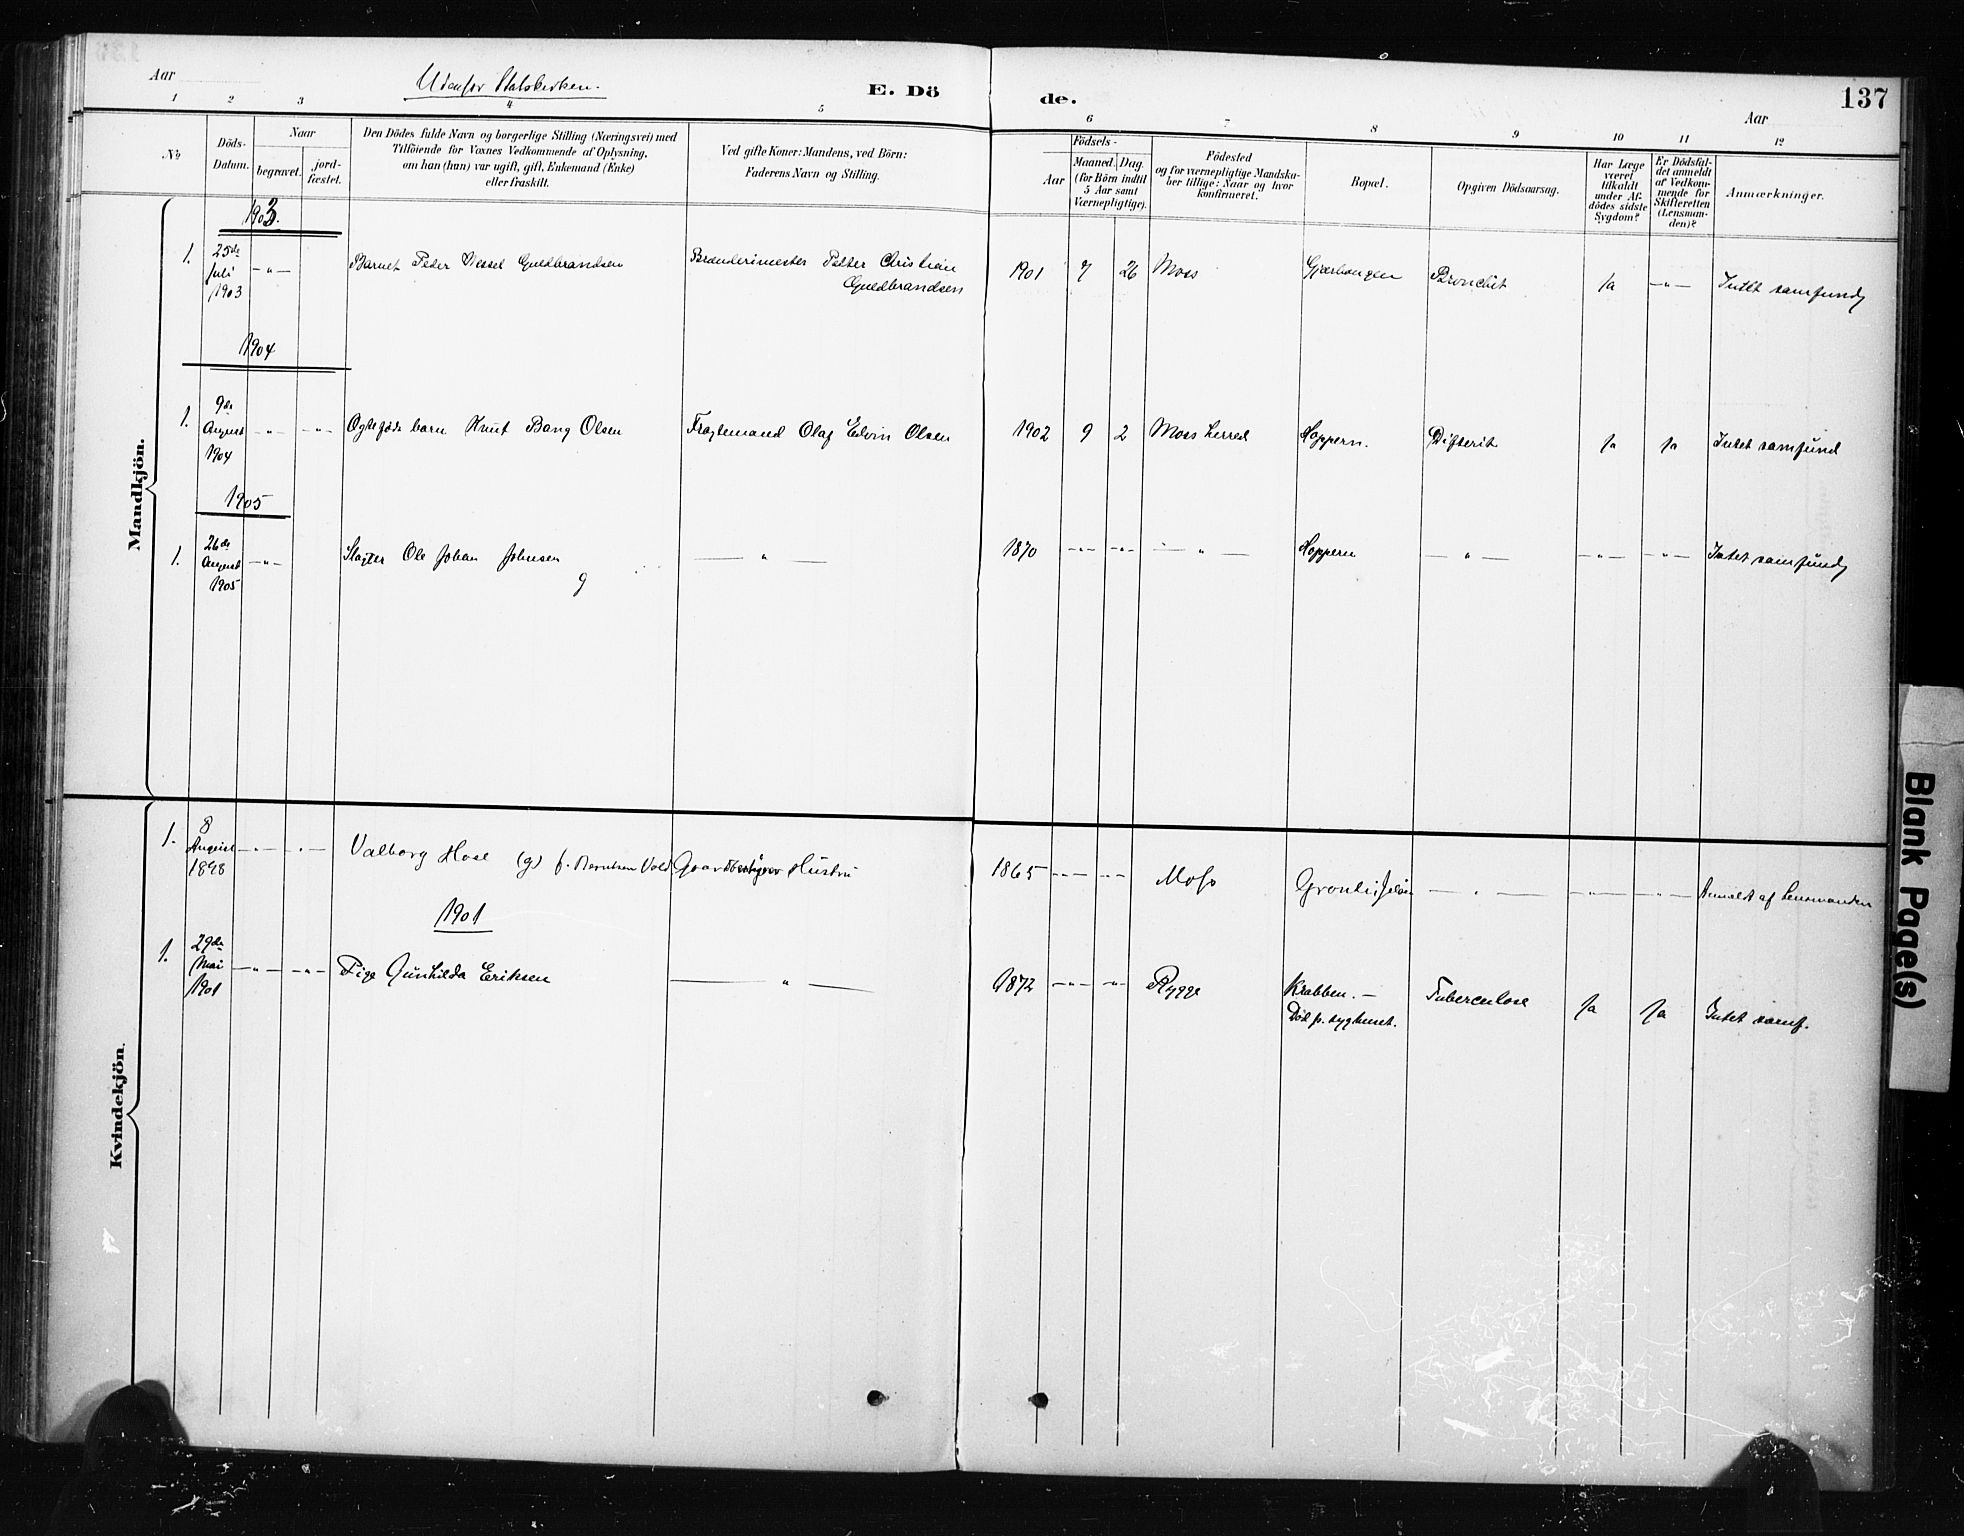 Aar
Udenfor Statskirken.
E. Dö
de.
Aar
137
1 2 3 4 5 6 7 8 9 10 11 12
No
Döds-
Datum.
Naar
begravet.
jord-
fæstet.
Den Dödes fulde Navn og borgerlige Stilling (Næringsvei) med
Tilföiende for Voxnes Vedkommende af Oplysning,
om han (hun) var ugift, gift, Enkemand (Enke)
eller fraskilt.
Ved gifte Koner: Mandens, ved Börn:
Faderens Navn og Stilling.
Födsels-
Aar
Maaned.
Dag.
(for Börn indtil
5 Aar samt
Værnepligtige).
Födested
og for værnepligtige Mandska-
ber tillige: Naar og hvor
konfirmeret.
Bopæl.
Opgiven Dödsaarsag.
Har Læge
været
tilkaldt
under Af-
dödes sidste
Sygdom?
Er Dödsfal-
det anmeldt
af Vedkom-
mende for
Skifteretten
(Lensman-
den)?
Anmærkninger.
Mandkjön.
1903.
1. 25de Juli 1903 -"- Barnet Peder Wessel Guldbrandsen Brænderimester Petter Christian Guldbrandsen 1901 7 26 Moss Bronchit Ja -"- Intet samfund
1904
1. 9de August 1904 -"- -"- Ægtefødt barn Knut Bang Olsen Fragtemand Olaf Edvin Olsen 1902 9 2 Moss Herred Hoppern. Difterit Ja Ja Intet samfund
1905
1. 26de August 1905 -"- Slagter Ole Johan Johnsen g — " — 1870 -"- -"- — " — Hoppern — " — -"- -"- Intet samfund
Kvindekjön.
1. 8 August 1898 -"- -"- Valborg Hose (g) f. Berntsen Vold Gaardbestyrer Hustru 1865 -"- -"- Moss Grønli, Jeløen — " — -"- -"- Anmeldt af Lensmanden
1901
1. 29de Mai 1901 -"- -"- Pige Gunhilda Eriksen — " — 1872 -"- -"- Rygge Krabben. — Død p. sygehuset. Tuberculose Ja Ja Intet samf.
Blank Page(s)